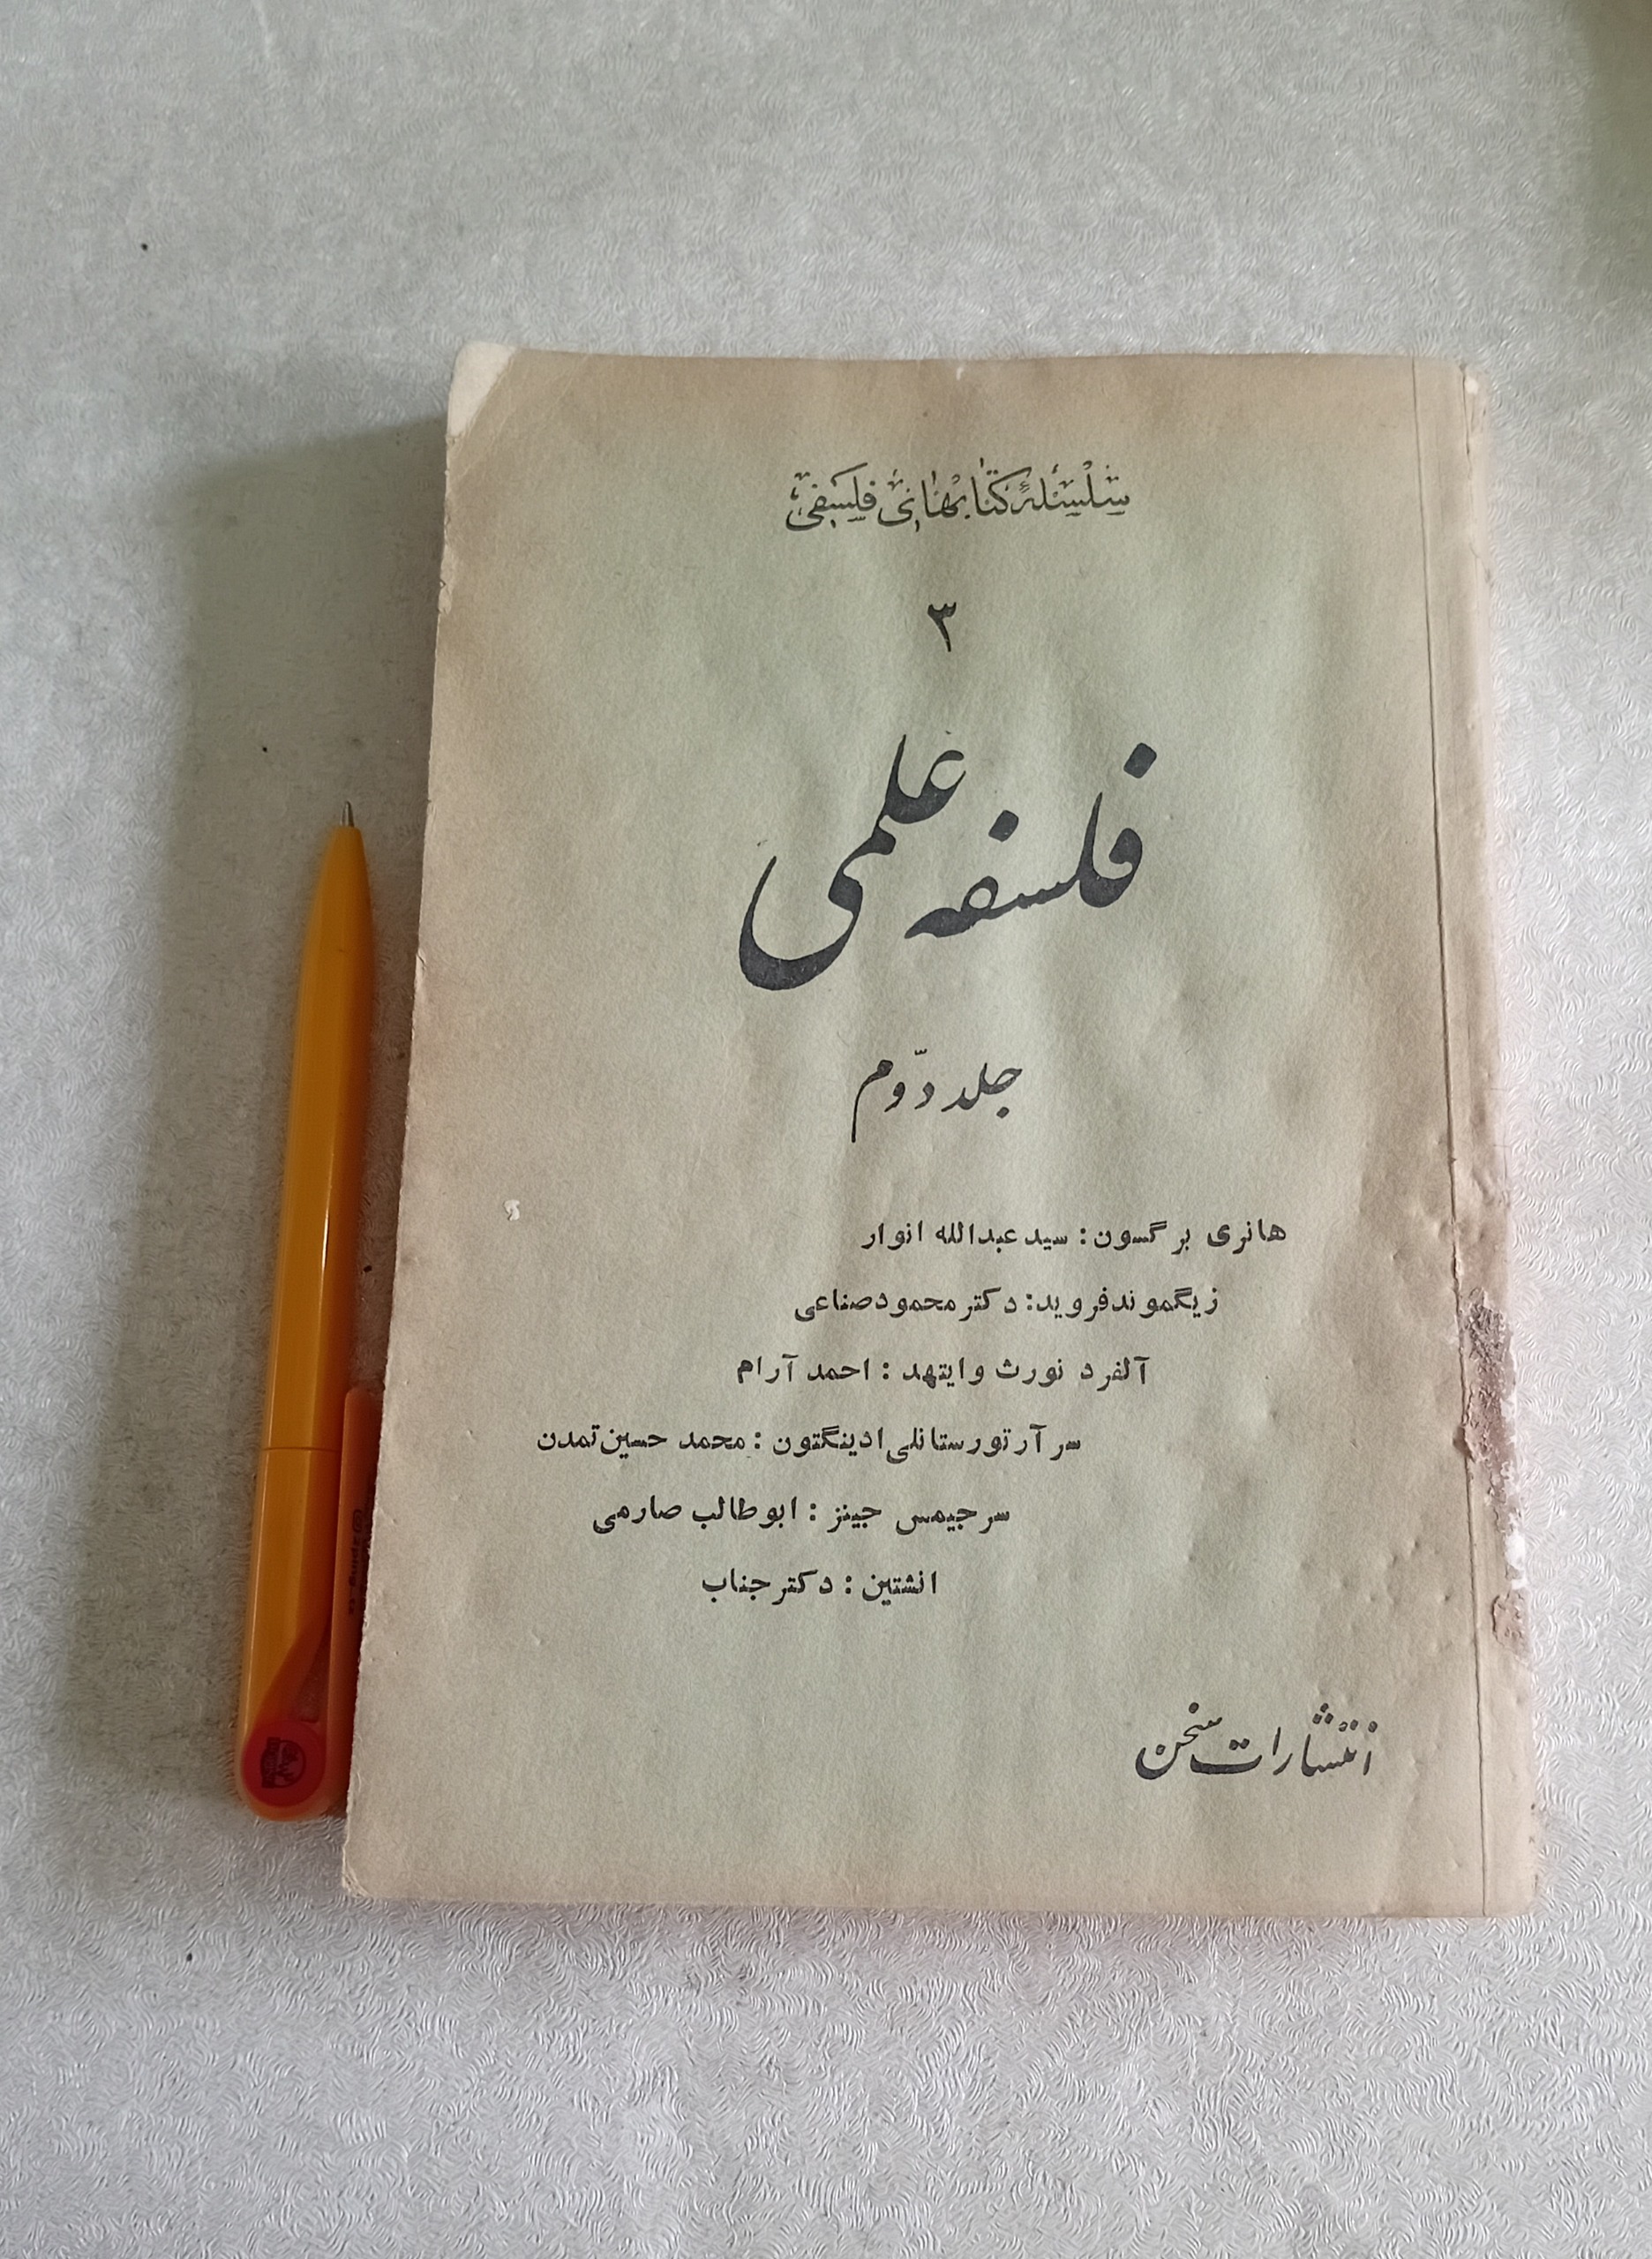 سلسلهٔ کتابهای فلسفی
۳
فلسفه علمی
جلد دوّم
هانری برگسون: سید عبدالله انوار
زیگموند فروید: دکتر محمود صناعی
آلفرد نورث وایتهد: احمد آرام
سر آرتور ستانلی ادینگتون: محمد حسین تمدن
سر جیمس جینز: ابوطالب صارمی
انشتین: دکتر جناب
انتشارات سخن